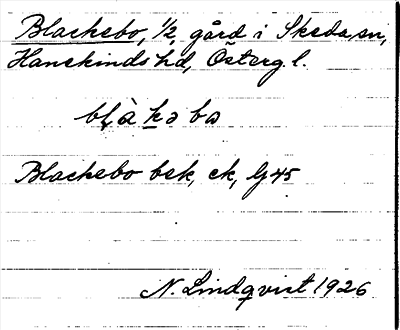 Blackebo, 1/2, gård i Skeda sn,
Hanekinds hd, Österg. l.
Blackebo bsk, ek, G 45
N. Lindqvist 1926